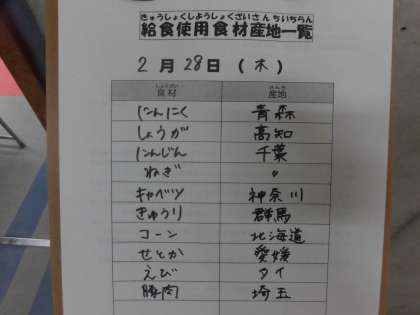 きゅうしょくしようしょくざいさんちいちらん
給食使用食材産地一覧
2月28日(木)
しょくざい さんち
食材 産地
にんにく 青森
しょうが 高知
にんじん 千葉
ねぎ 〃
キャベツ 神奈川
きゅうり 群馬
コーン 北海道
せとか 愛媛
えび タイ
豚肉 埼玉